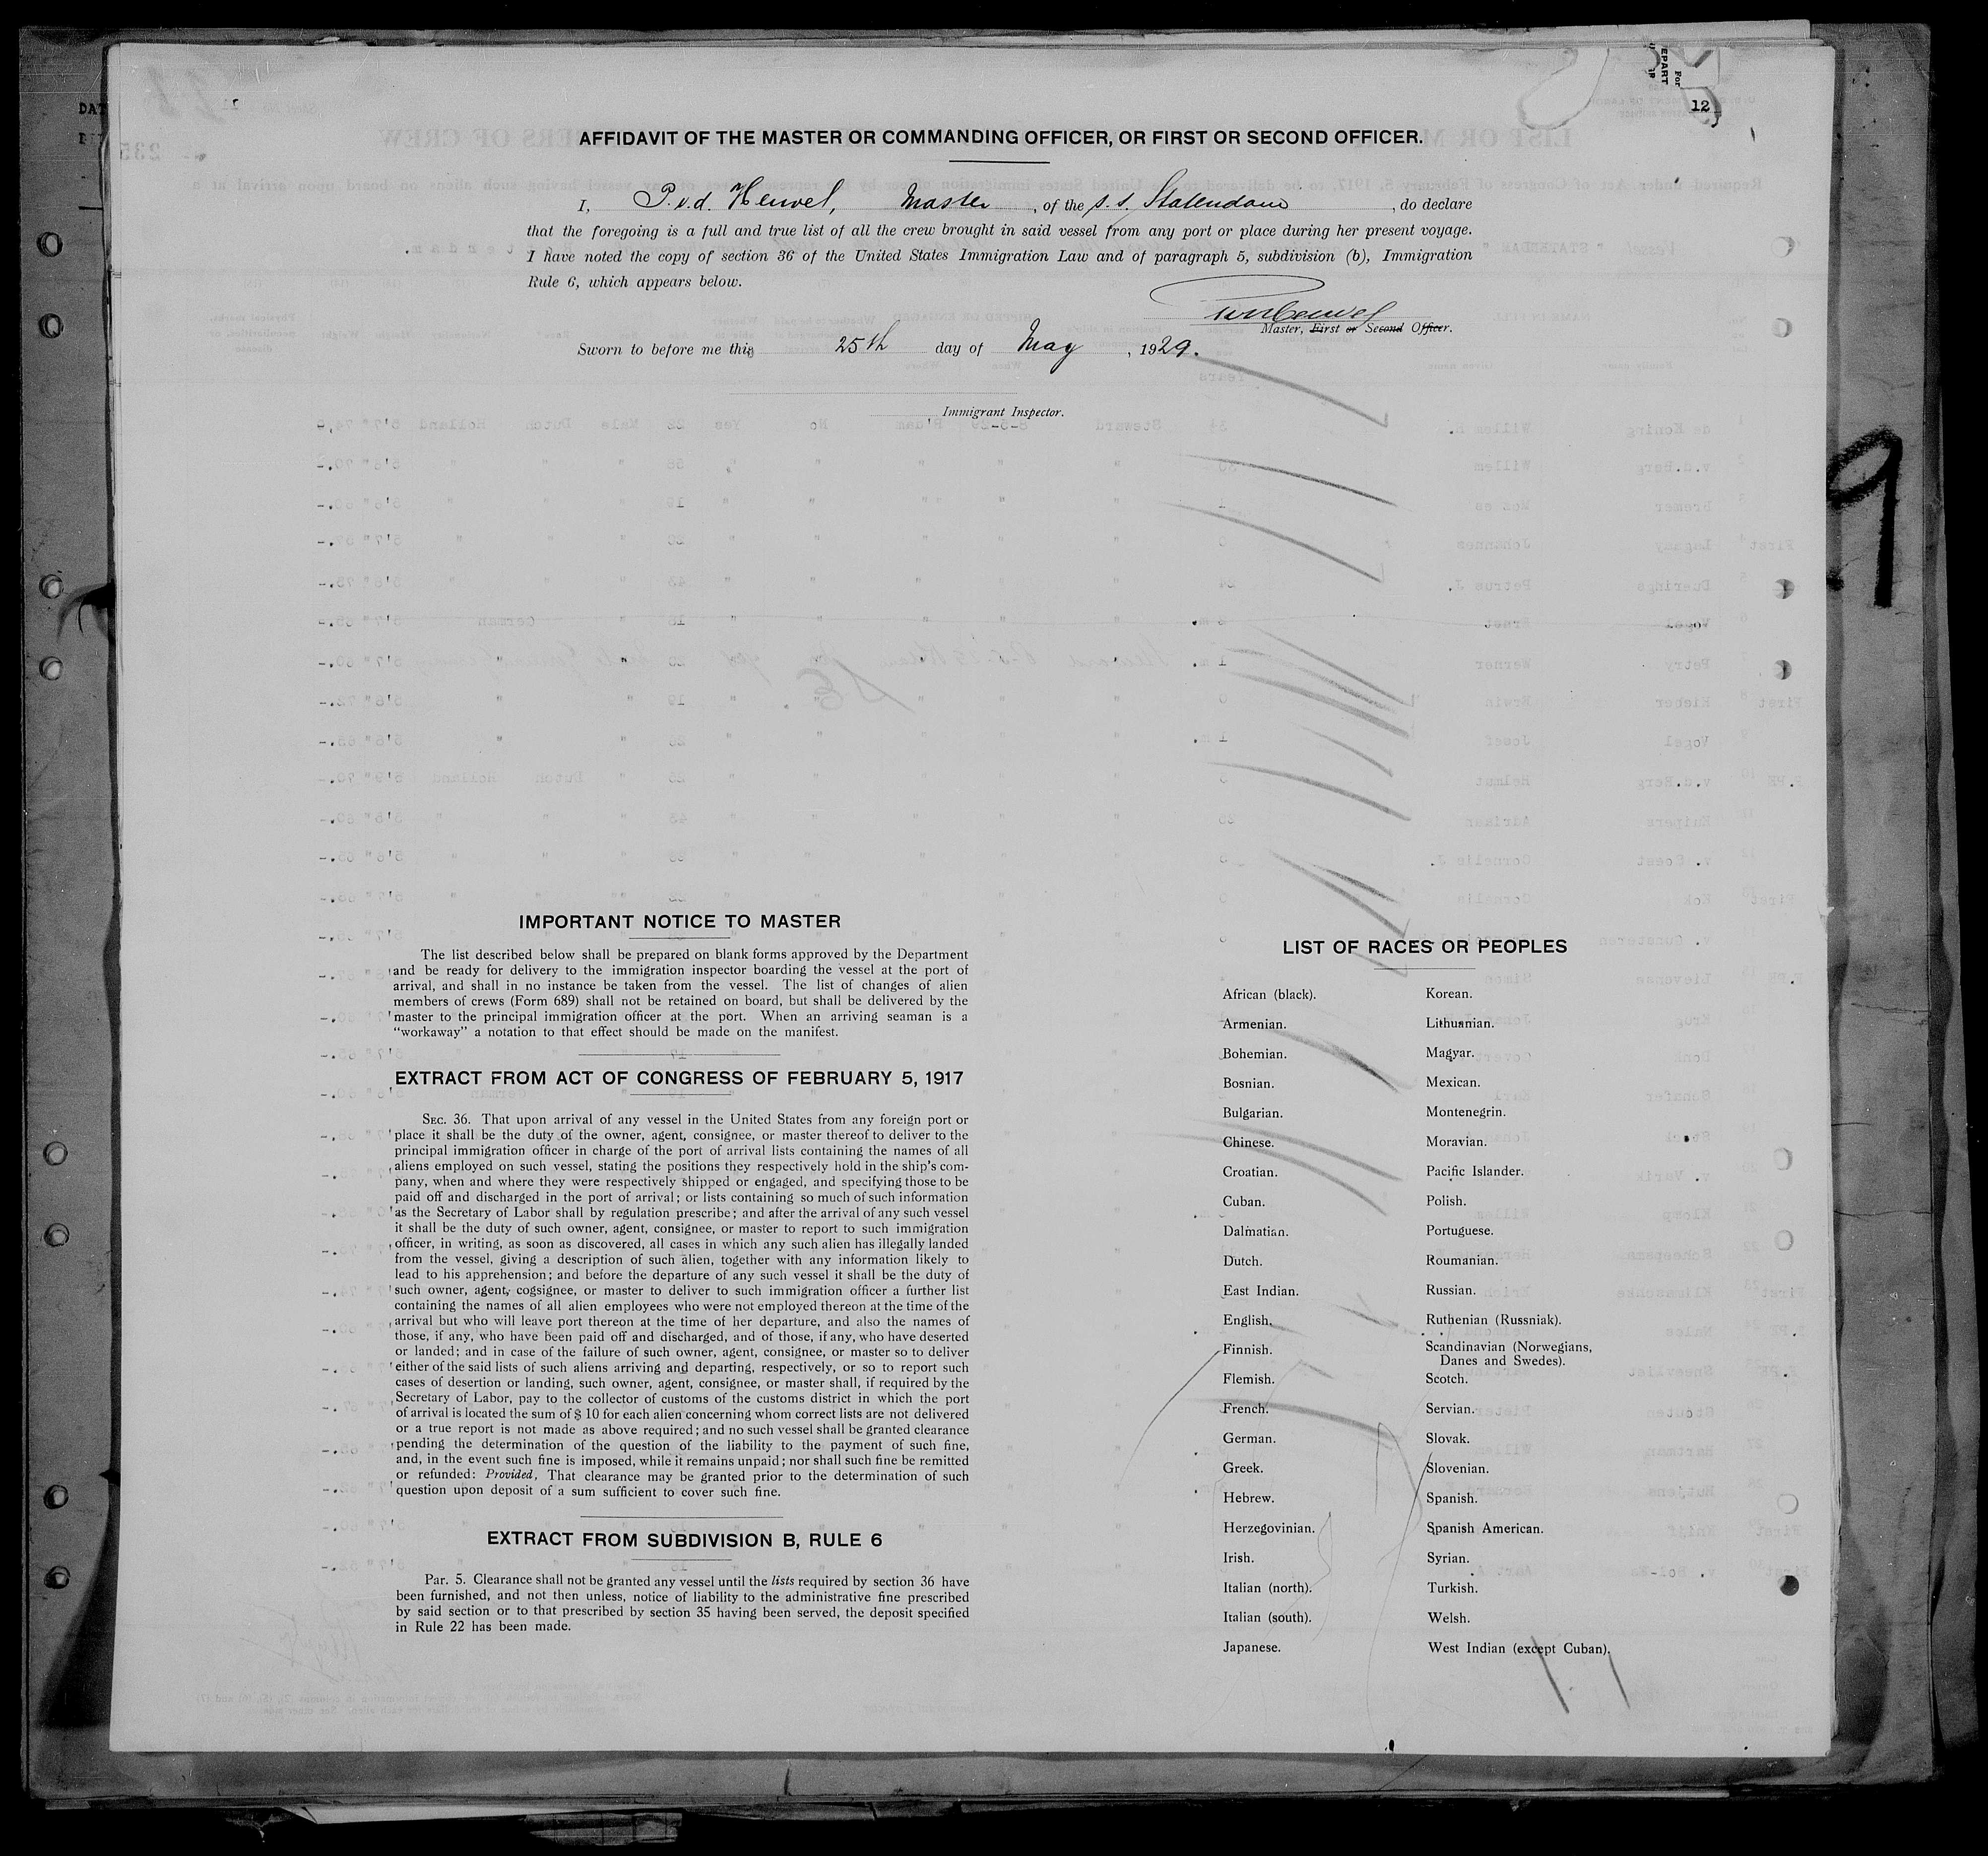 12
AFFIDAVIT OF THE MASTER OR COMMANDING OFFICER, OR FIRST OR SECOND OFFICER.
I, P. v. d. Heuvel, Master, of the s. s. Statendam, do declare
that the foregoing is a full and true list of all the crew brought in said vessel from any port or place during her present voyage.
I have noted the copy of section 36 of the United States Immigration Law and of paragraph 5, subdivision (b), Immigration
Rule 6, which appears below.
Master, First or Second Officer.
Sworn to before me this 25th day of May, 1929.
Immigrant Inspector.
IMPORTANT NOTICE TO MASTER
The list described below shall be prepared on blank forms approved by the Department
and be ready for delivery to the immigration inspector boarding the vessel at the port of
arrival, and shall in no instance be taken from the vessel. The list of changes of alien
members of crews (Form 689) shall not be retained on board, but shall be delivered by the
master to the principal immigration officer at the port. When an arriving seaman is a
“workaway” a notation to that effect should be made on the manifest.
EXTRACT FROM ACT OF CONGRESS OF FEBRUARY 5, 1917
SEC. 36. That upon arrival of any vessel in the United States from any foreign port or
place it shall be the duty of the owner, agent, consignee, or master thereof to deliver to the
principal immigration officer in charge of the port of arrival lists containing the names of all
aliens employed on such vessel, stating the positions they respectively hold in the ship's com-
pany, when and where they were respectively shipped or engaged, and specifying those to be
paid off and discharged in the port of arrival; or lists containing so much of such information
as the Secretary of Labor shall by regulation prescribe; and after the arrival of any such vessel
it shall be the duty of such owner, agent, consignee, or master to report to such immigration
officer, in writing, as soon as discovered, all cases in which any such alien has illegally landed
from the vessel, giving a description of such alien, together with any information likely to
lead to his apprehension; and before the departure of any such vessel it shall be the duty of
such owner, agent, cogsignee, or master to deliver to such immigration officer a further list
containing the names of all alien employees who were not employed thereon at the time of the
arrival but who will leave port thereon at the time of her departure, and also the names of
those, if any, who have been paid off and discharged, and of those, if any, who have deserted
or landed; and in case of the failure of such owner, agent, consignee, or master so to deliver
either of the said lists of such aliens arriving and departing, respectively, or so to report such
cases of desertion or landing, such owner, agent, consignee, or master shall, if required by the
Secretary of Labor, pay to the collector of customs of the customs district in which the port
of arrival is located the sum of $ 10 for each alien concerning whom correct lists are not delivered
or a true report is not made as above required; and no such vessel shall be granted clearance
pending the determination of the question of the liability to the payment of such fine,
and, in the event such fine is imposed, while it remains unpaid; nor shall such fine be remitted
or refunded: Provided, That clearance may be granted prior to the determination of such
question upon deposit of a sum sufficient to cover such fine.
EXTRACT FROM SUBDIVISION B, RULE 6
Par. 5. Clearance shall not be granted any vessel until the lists required by section 36 have
been furnished, and not then unless, notice of liability to the administrative fine prescribed
by said section or to that prescribed by section 35 having been served, the deposit specified
in Rule 22 has been made.
LIST OF RACES OR PEOPLES
African (black).
Armenian.
Bohemian.
Bosnian.
Bulgarian.
Chinese.
Croatian.
Cuban.
Dalmatian.
Dutch.
East Indian.
English.
Finnish.
Flemish.
French.
German.
Greek.
Hebrew.
Herzegovinian.
Irish.
Italian (north).
Italian (south).
Japanese.
Korean.
Lithuanian.
Magyar.
Mexican.
Montenegrin.
Moravian.
Pacific Islander.
Polish.
Portuguese.
Roumanian.
Russian.
Ruthenian (Russniak).
Scandinavian (Norwegians,
Danes and Swedes).
Scotch.
Servian.
Slovak.
Slovenian.
Spanish.
Spanish American.
Syrian.
Turkish.
Welsh.
West Indian (except Cuban).